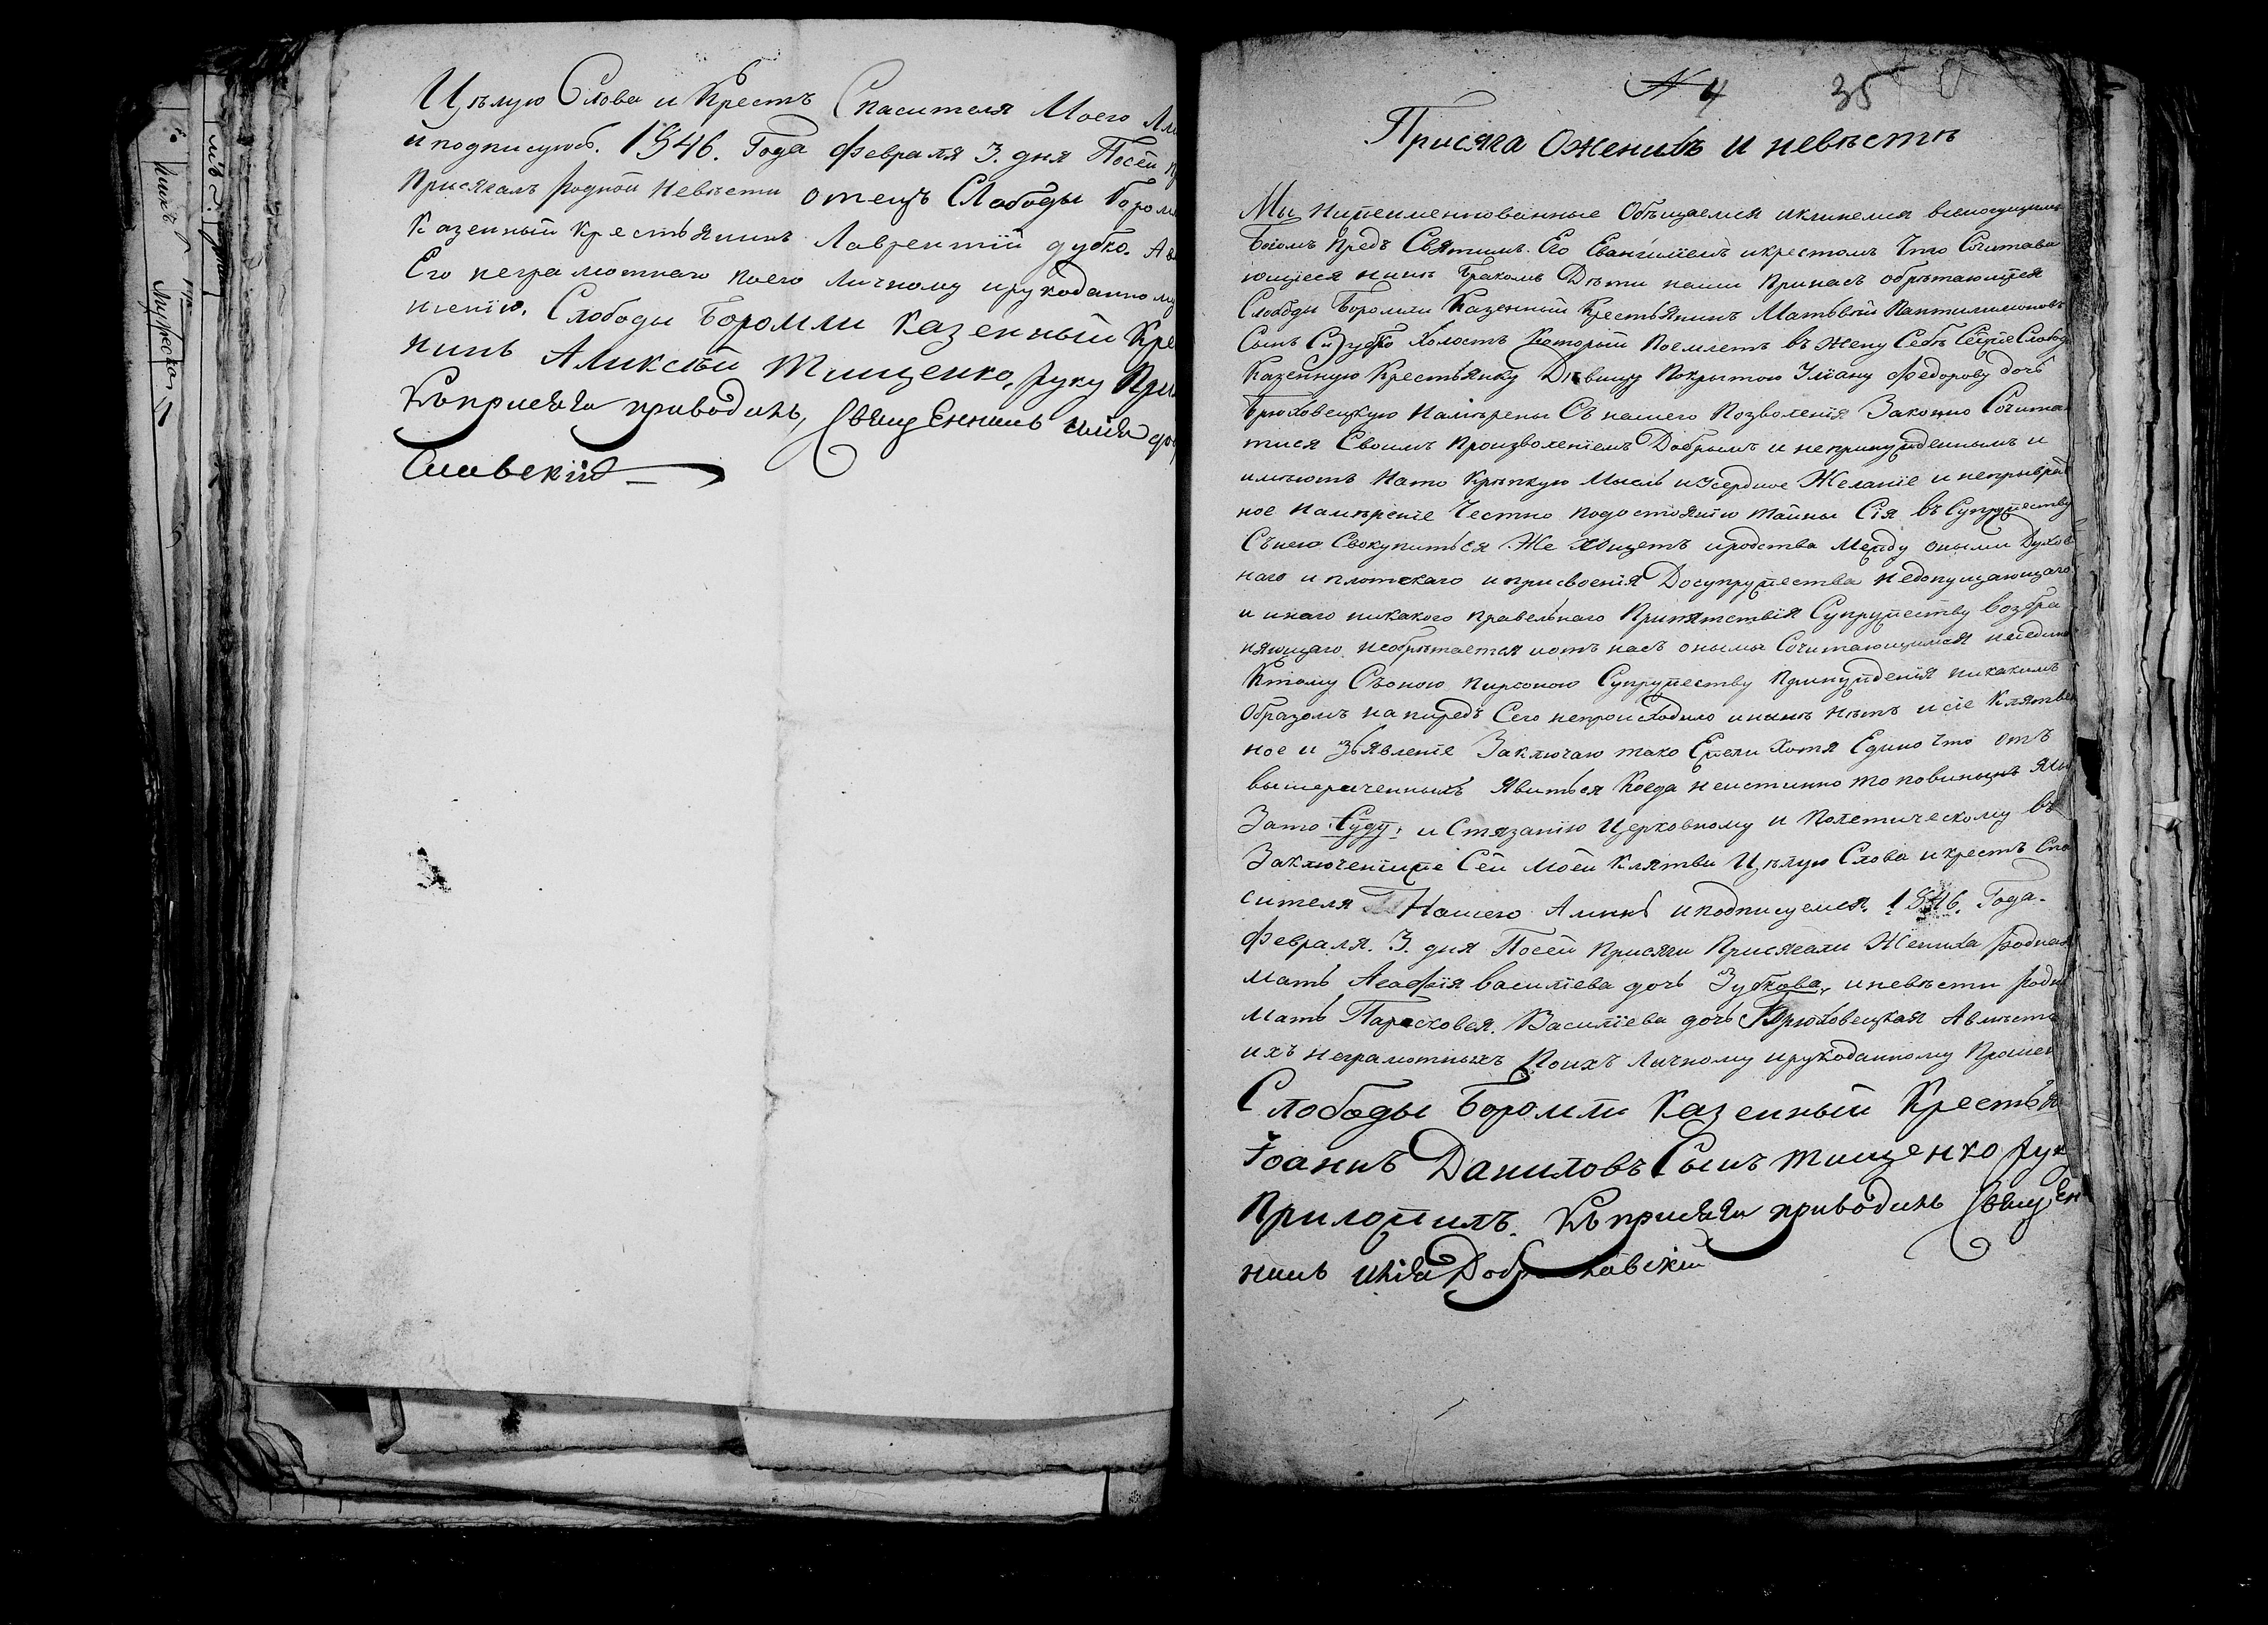 Цѣлую Слова и Крестъ Спасителя Моего
и подписуюсь. 1846. Года февраля 3. дня Посей
Присягалъ родной Невѣсти отецъ Слободы
Казенный Крестьянинъ Лаврентїй дубко.
Его неграмотнаго поего Личному ирукоданному
Слободы Боромли Казенный
нинъ Алексѣй Тищенко, руку
Къприсягѣ приводилъ, Священникъ

№ 4 35
Присяга Оженихѣ и невѣстѣ
Мы Нижеименнованные Обѣщаемся иклянемся
Богомъ Предъ Святымъ Его Евангелїемъ икрестомъ Что
ющїеся нинѣ Бракомъ Дѣти наши Принасъ обрѣтающїеся
Слободы Боромли Казенный Крестьянинъ Матвѣй Пантилимоновъ
Сынъ Холостъ Который Поемлетъ въ Жену Себѣ Сейже
Казенную Крестьянку Дѣвицу Покрытою Улїану Федорову дочь
Брюховецкую Намѣрены Съ нашего Позволенїя Законно
тися Своимъ Произволенїемъ Добрымъ и непринужденнымъ и
имѣютъ Нато Крѣпкую Мысль иУсердное Желанїе и
ное Намѣренїе Честно подостоянїю тайны Сїя въ Супружеству
Снего Свокупиться Же ипроства Между оными
наго и плотскаго иприсвоенїя Досупружества недопущающаго
и инаго никакого правельнаго Припятствїя Супружеству
няющаго необрѣтается иотъ насъ онымы Сочитающимся
Ктому Съоною Пирсоною Супружеству Принужденїя никакимъ
Образомъ напиредъ Сего непроисходило инынѣ нѣтъ исїе
ное и Зъявленїе Заключаю тако Ежели Хотя Едино Что отъ
вышереченныхъ Явиться Когда неистинно то
Зато Суду и Стязанїю Церковному и Политическому въ
Заключенїиже Сей Моей Клятвы Цѣлую Слова икрестъ Спа
сителя Нашего Аминь иподписуемся. 1846. Года.
февраля. 3. дня Посей присяги Присягали Жениха
мать Агафїя василїева дочь Зубкова, иневѣсти
Мать Парасковея Василїева дочь Брюховецкая
ихъ неграмотныхъ Поихъ Личному ирукоданному
Слободы Боромли Казенный
Іоаннъ Даниловъ Сынъ тищенко
Приложилъ. Къприсягѣ приводилъ Священ
никъ